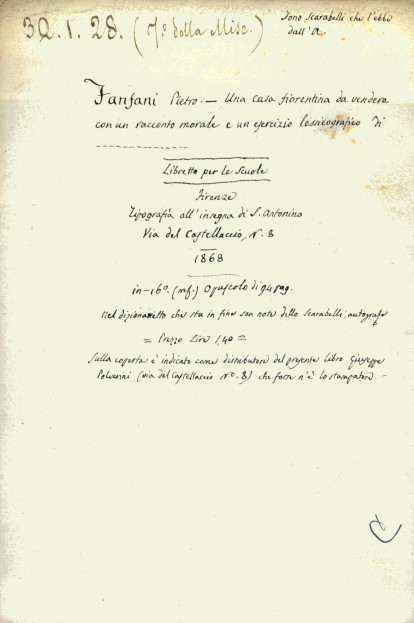 32.1.28. (N.º della Misc.)
Dono Scarabelli che l'ebbe
dall'A.
Fanfani Pietro. — Una casa fiorentina da vendere
con un racconto morale e un esercizio lessicografico di
Libretto per le Scuole
Firenze
Tipografia all'insegna di S. Antonino
Via del Castellaccio, N. 8
1868
in-16º. (mf.) Opuscolo di 94 pag.
Nel dizionarietto che sta in fine son note dello Scarabelli, autografe
= Prezzo Lire 1,40 =
Sulla coperta è indicato come distributore del presente libro Giuseppe
Polverini (via del Castellaccio Nº. 8) che forse n'è lo stampatore -